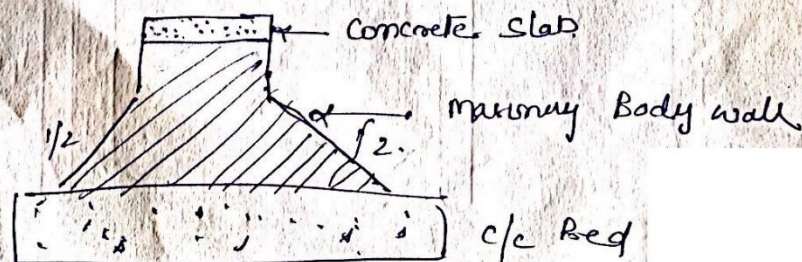 concrete slab
masonry Body wall
1/2
2.
c/c Bed